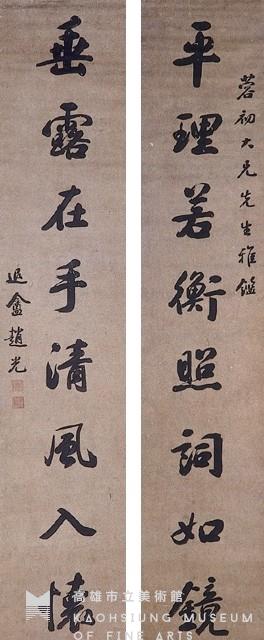 蓉初大兄先生雅鑑
平理若衡照詞如鏡
垂露在手清風入懷
退盦趙光
高雄市立美術館
KAOHSIUNG MUSEUM
OF FINE ARTS